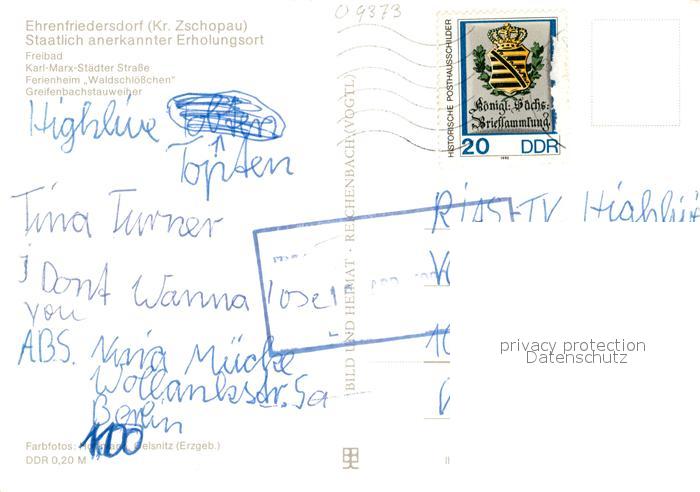 O 9373
Ehrenfriedersdorf (Kr. Zschopau)
Staatlich anerkannter Erholungsort
Freibad
Karl-Marx-Städter Straße
Ferienheim „Waldschlößchen"
Greifenbachstauweiher
Highlive
Topten
Tina Turner
I Dont Wanna lose
you
ABS. Nina Mücke
Wollankstr. 5a
Berlin
1100
Farbfotos: Oelsnitz (Erzgeb.)
DDR 0,20 M
BILD UND HEIMAT · REICHENBACH (VOGTL)
HISTORISCHE POSTHAUSSCHILDER
Königl: Sächs:
Briefsammlung
20 DDR
1990
RIAS-TV
privacy protection
Datenschutz